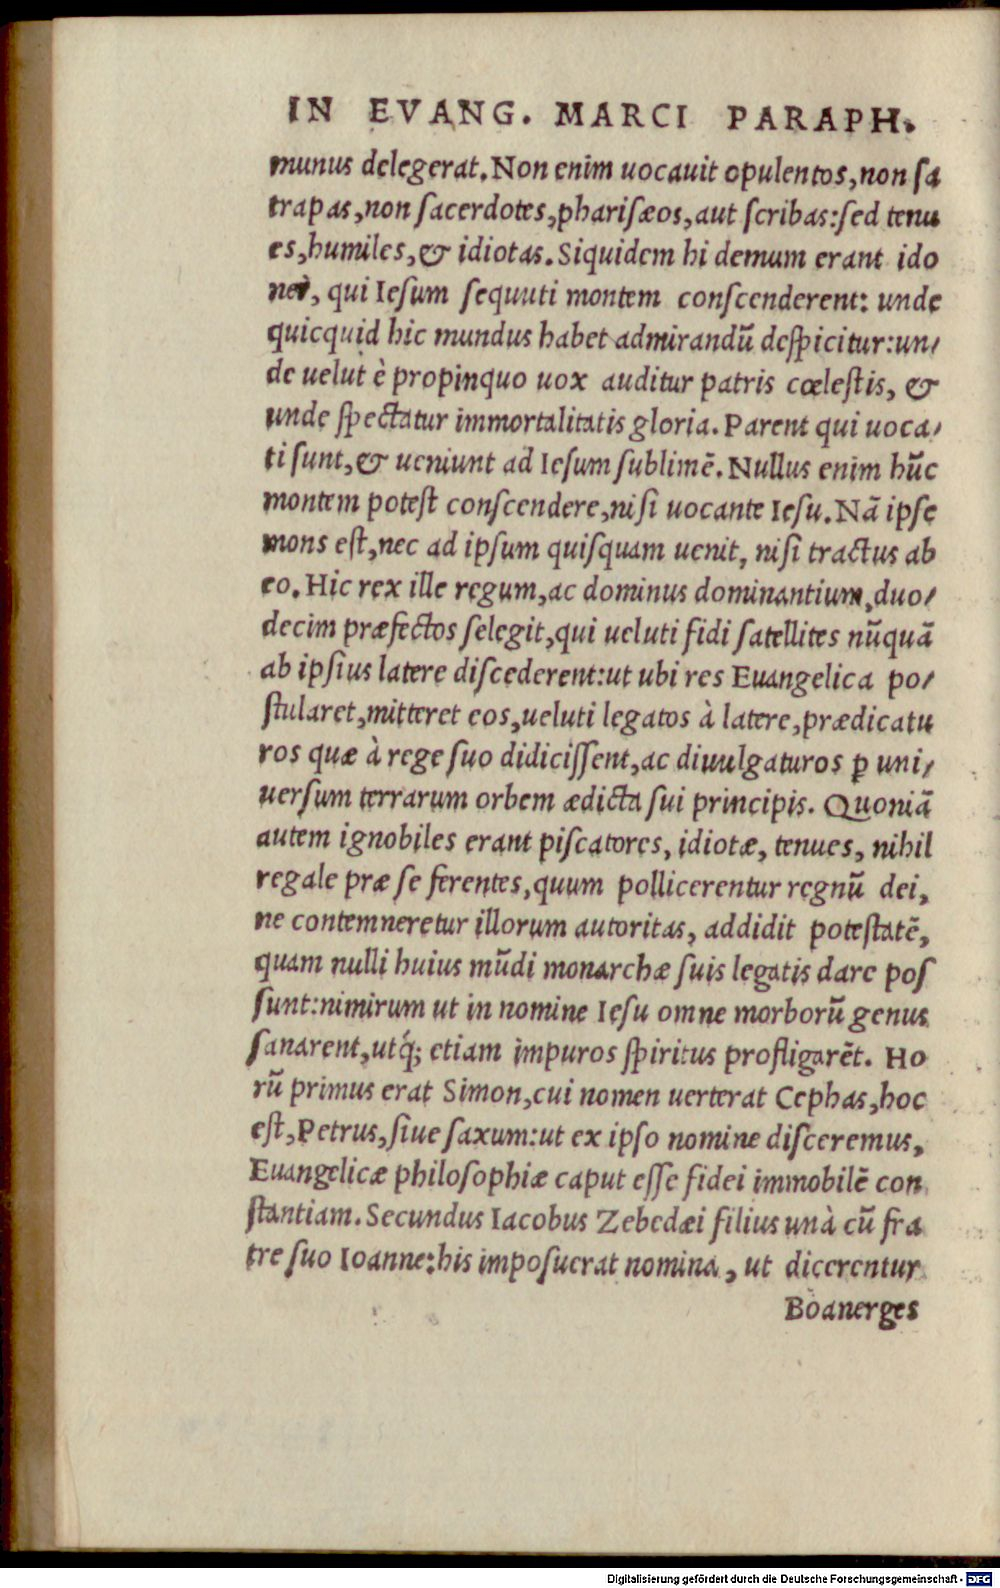 IN EVANG. MARCI PARAPH.
munus delegerat. Non enim uocauit opulentos, non ſa
trapas, non ſacerdotes, phariſæos, aut ſcribas: ſed tenu
es, humiles, & idiotas. Siquidem hi demum erant ido
nei, qui Ieſum ſequuti montem conſcenderent: unde
quicquid hic mundus habet admirandū deſpicitur: un/
de uelut è propinquo uox auditur patris cœleſtis, &
unde ſpectatur immortalitatis gloria. Parent qui uoca/
ti ſunt, & ueniunt ad Ieſum ſublimē. Nullus enim hūc
montem poteſt conſcendere, niſi uocante Ieſu. Nā ipſe
mons eſt, nec ad ipſum quiſquam uenit, niſi tractus ab
eo. Hic rex ille regum, ac dominus dominantium, duo/
decim præfectos ſelegit, qui ueluti fidi ſatellites nūquā
ab ipſius latere diſcederent: ut ubi res Euangelica po/
ſtularet, mitteret eos, ueluti legatos à latere, prædicatu
ros quæ à rege ſuo didiciſſent, ac diuulgaturos ꝑ uni/
uerſum terrarum orbem ædicta ſui principis. Quoniā
autem ignobiles erant piſcatores, idiotæ, tenues, nihil
regale præ ſe ferentes, quum pollicerentur regnū dei,
ne contemneretur illorum autoritas, addidit poteſtatē,
quam nulli huius mūdi monarchæ ſuis legatis dare poſ
ſunt: nimirum ut in nomine Ieſu omne morborū genus
ſanarent, utq́; etiam impuros ſpiritus profligarēt. Ho
rū primus erat Simon, cui nomen uerterat Cephas, hoc
eſt, Petrus, ſiue ſaxum: ut ex ipſo nomine diſceremus,
Euangelicæ philoſophiæ caput eſſe fidei immobilē con
ſtantiam. Secundus Iacobus Zebedæi filius unà cū fra
tre ſuo Ioanne: his impoſuerat nomina, ut dicerentur
Boanerges
Digitalisierung gefördert durch die Deutsche Forschungsgemeinschaft - DFG